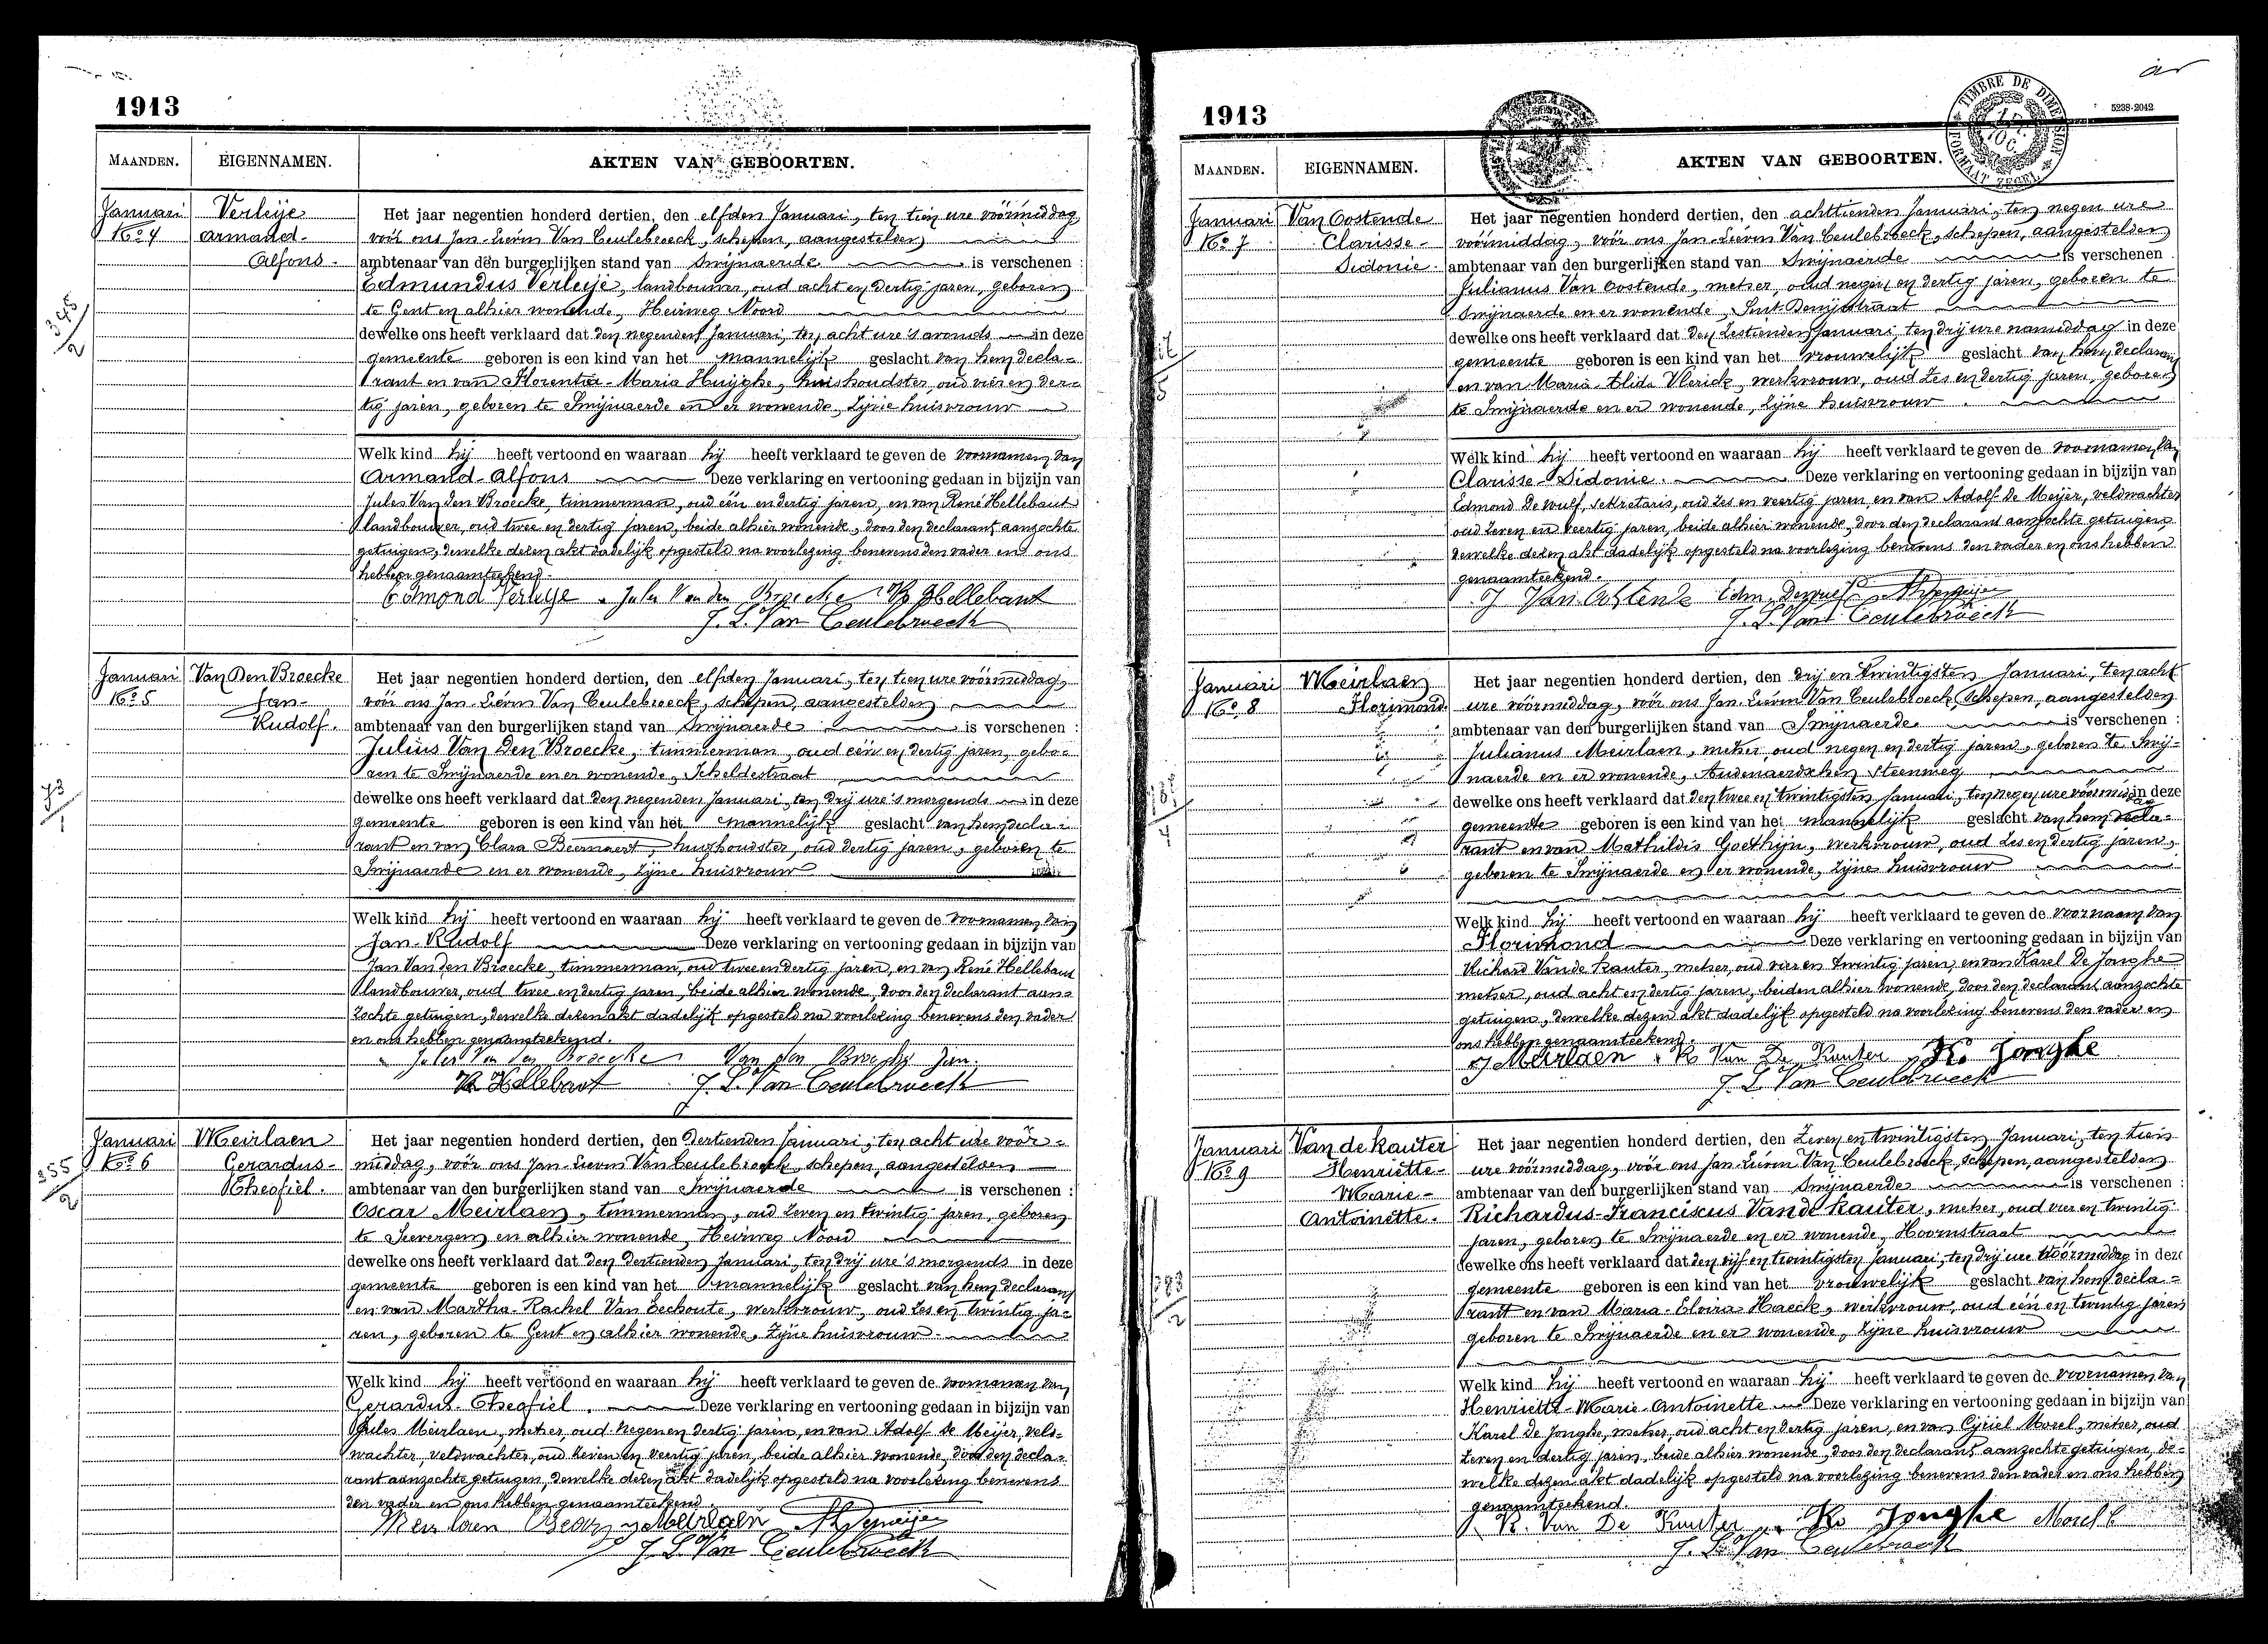 1913
MAANDEN. EIGENNAMEN. AKTEN VAN GEBOORTEN.
Januari
No 4
Verleije
Armand-
Alfons.
Het jaar negentien honderd dertien, den elfden Januari, ten tien ure vóórmiddag
vóór ons Jan-Lievin Van Ceulebroeck, schepen, aangestelden
ambtenaar van den burgerlijken stand van Swijnaerde is verschenen :
Edmundus Verleije, landbouwer, oud acht en dertig jaren, geboren
te Gent en alhier wonende, Heirweg Noord
dewelke ons heeft verklaard dat den negenden Januari, ten acht ure 's avonds in deze
gemeente geboren is een kind van het mannelijk geslacht van hem decla-
rant en van Florentia-Maria Huijghe, huishoudster, oud vier en der-
tig jaren, geboren te Swijnaerde en er wonende, zijne huisvrouw
Welk kind hij heeft vertoond en waaraan hij heeft verklaard te geven de voornamen van
Armand-Alfons Deze verklaring en vertooning gedaan in bijzijn van
Jules Van den Broecke, timmerman, oud één en dertig jaren, en van René Hellebaut
landbouwer, oud twee en dertig jaren, beide alhier wonende, door den declarant aanzochte
getuigen, dewelke dezen akt dadelijk opgesteld na voorlezing benevens den vader en ons
hebben genaamteekend.
Edmond Verleije Jules Van den Broecke R Hellebaut
J. L. Van Ceulebroeck
345
2
Januari
No 5
Van Den Broecke
Jan-
Rudolf.
Het jaar negentien honderd dertien, den elfden Januari, ten tien ure vóórmiddag,
vóór ons Jan-Lievin Van Ceulebroeck, schepen, aangestelden
ambtenaar van den burgerlijken stand van Swijnaerde is verschenen :
Julius Van Den Broecke, timmerman, oud één en dertig jaren, gebo-
ren te Swijnaerde en er wonende, Scheldestraat
dewelke ons heeft verklaard dat den negenden Januari, ten drij ure 's morgends in deze
gemeente geboren is een kind van het mannelijk geslacht van hem decla-
rant en van Clara Beernaert, huishoudster, oud dertig jaren, geboren te
Swijnaerde en er wonende, zijne huisvrouw
Welk kind hij heeft vertoond en waaraan hij heeft verklaard te geven de voornamen van
Jan-Rudolf Deze verklaring en vertooning gedaan in bijzijn van
Jan Van den Broecke, timmerman, oud twee en dertig jaren, en van René Hellebaut
landbouwer, oud twee en dertig jaren, beide alhier wonende, door den declarant aan-
zochte getuigen, dewelke dezen akt dadelijk opgesteld na voorlezing benevens den vader
en ons hebben genaamteekend.
Jules Van den Broecke Van den Broecke Jan.
R Hellebaut J. L. Van Ceulebroeck
Januari
No 6
Meirlaen
Gerardus-
Theofiel.
Het jaar negentien honderd dertien, den dertienden Januari, ten acht ure vóór-
middag, vóór ons Jan-Lievin Van Ceulebroeck, schepen, aangestelden
ambtenaar van den burgerlijken stand van Swijnaerde is verschenen :
Oscar Meirlaen, timmerman, oud zeven en twintig jaren, geboren
te Seevergem en alhier wonende, Heirweg Noord
dewelke ons heeft verklaard dat den dertienden Januari, ten drij ure 's morgends in deze
gemeente geboren is een kind van het mannelijk geslacht van hem declarant
en van Martha-Rachel Van Eechoute, werkvrouw, oud zes en twintig ja-
ren, geboren te Gent en alhier wonende, zijne huisvrouw.
Welk kind hij heeft vertoond en waaraan hij heeft verklaard te geven de voornamen van
Gerardus-Theofiel. Deze verklaring en vertooning gedaan in bijzijn van
Jules Meirlaen, metser, oud negen en dertig jaren, en van Adolf De Meijer, veld-
wachter, veldwachter, oud zeven en veertig jaren, beide alhier wonende, door den decla-
rant aanzochte getuigen, dewelke dezen akt dadelijk opgesteld na voorlezing benevens
den vader en ons hebben genaamteekend.
Meirlaen Oscar J Meirlaen A Demeijer
J. L. Van Ceulebroeck
355
2
1913
TIMBRE DE DIMENSION
FORMAAT ZEGEL
5238-2042
MAANDEN. EIGENNAMEN. AKTEN VAN GEBOORTEN.
Januari
No 7
Van Oostende
Clarisse-
Sidonie.
Het jaar negentien honderd dertien, den achttienden Januari, ten negen ure
vóórmiddag, vóór ons Jan-Lievin Van Ceulebroeck, schepen, aangestelden
ambtenaar van den burgerlijken stand van Swijnaerde is verschenen
Julianus Van Oostende, metser, oud negen en dertig jaren, geboren te
Swijnaerde en er wonende, Sint-Denijsstraat
dewelke ons heeft verklaard dat den zestienden Januari ten drij ure namiddag in deze
gemeente geboren is een kind van het vrouwelijk geslacht van hem declarant
en van Maria-Elida Vlerick, werkvrouw, oud zes en dertig jaren, geboren
te Swijnaerde en er wonende, zijne huisvrouw
Welk kind hij heeft vertoond en waaraan hij heeft verklaard te geven de voornamen van
Clarisse-Sidonie. Deze verklaring en vertooning gedaan in bijzijn van
Edmond De Wulf, sekretaris, oud zes en veertig jaren, en van Adolf De Meijer, veldwachter
oud zeven en veertig jaren, beide alhier wonende, door den declarant aanzochte getuigen,
dewelke dezen akt dadelijk opgesteld na voorlezing benevens den vader en ons hebben
genaamteekend.
J Van Ostende Edm. Dewulf A Demeijer
J. L. Van Ceulebroeck
Januari
No 8
Meirlaen
Florimond.
Het jaar negentien honderd dertien, den drij en twintigsten Januari, ten acht
ure vóórmiddag, vóór ons Jan-Lievin Van Ceulebroeck, schepen, aangestelden
ambtenaar van den burgerlijken stand van Swijnaerde is verschenen :
Julianus Meirlaen, metser, oud negen en dertig jaren, geboren te Swij-
naerde en er wonende, Audenaerdschen Steenweg
dewelke ons heeft verklaard dat den twee en twintigsten Januari, ten negen ure vóórmiddag in deze
gemeente geboren is een kind van het mannelijk geslacht van hem decla-
rant en van Mathildis Goethijn, werkvrouw, oud zes en dertig jaren,
geboren te Swijnaerde en er wonende, zijne huisvrouw
Welk kind hij heeft vertoond en waaraan hij heeft verklaard te geven de voornaam van
Florimond Deze verklaring en vertooning gedaan in bijzijn van
Richard Van de Kauter, metser, oud vier en twintig jaren, en van Karel De Jonghe
metser, oud acht en dertig jaren, beiden alhier wonende, door den declarant aanzochte
getuigen, dewelke dezen akt dadelijk opgesteld na voorlezing benevens den vader en
ons hebben genaamteekend.
J Meirlaen R Van De Kauter K. Jonghe
J. L. Van Ceulebroeck
Januari
No 9
Van de Kauter
Henriette-
Marie-
Antoinette.
Het jaar negentien honderd dertien, den zeven en twintigsten Januari, ten tien
ure vóórmiddag, vóór ons Jan-Lievin Van Ceulebroeck, schepen, aangestelden
ambtenaar van den burgerlijken stand van Swijnaerde is verschenen :
Richardus-Franciscus Van de Kauter, metser, oud vier en twintig
jaren, geboren te Swijnaerde en er wonende, Hoornstraat
dewelke ons heeft verklaard dat den vijf en twintigsten Januari, ten drij ure vóórmiddag in deze
gemeente geboren is een kind van het vrouwelijk geslacht van hem decla-
rant en van Maria-Elvira Haeck, werkvrouw, oud één en twintig jaren
geboren te Swijnaerde en er wonende, zijne huisvrouw
Welk kind hij heeft vertoond en waaraan hij heeft verklaard te geven de voornamen van
Henriette-Marie-Antoinette Deze verklaring en vertooning gedaan in bijzijn van
Karel De Jonghe, metser, oud acht en dertig jaren, en van Cyriel Morel, metser, oud
zeven en dertig jaren, beide alhier wonende, door den declarant aanzochte getuigen, de-
welke dezen akt dadelijk opgesteld na voorlezing benevens den vader en ons hebben
genaamteekend.
R. Van De Kauter K. Jonghe Morel C
J. L. Van Ceulebroeck